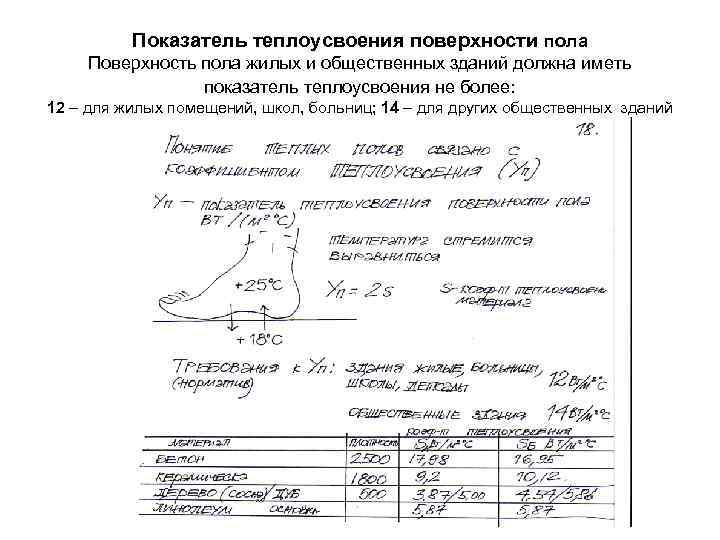 Показатель теплоусвоения поверхности пола
Поверхность пола жилых и общественных зданий должна иметь
показатель теплоусвоения не более:
12 – для жилых помещений, школ, больниц; 14 – для других общественных зданий
18.
Понятие теплых полов связано с
коэффициентом теплоусвоения (Yп)
Yп – показатель теплоусвоения поверхности пола
Вт/(м² °С)
температура стремится
выравниться
+25°C
Yп = 2s
S - коэф-т теплоусвоен
материала
+18°C
Требования к Yп: здания жилые, больницы,
(норматив) школы, детсады 12 Вт/м²°С
общественные здания 14 Вт/м²°С
коэф-т теплоусвоения
материал плотность SА Вт/м²°С SБ Вт/м²°С
бетон 2500 17,98 16,95
керамическа 1800 9,2 10,12
дерево (сосна)/дуб 500 3,87/5,00 4,54/5,86
линолеум основы 5,87 5,87